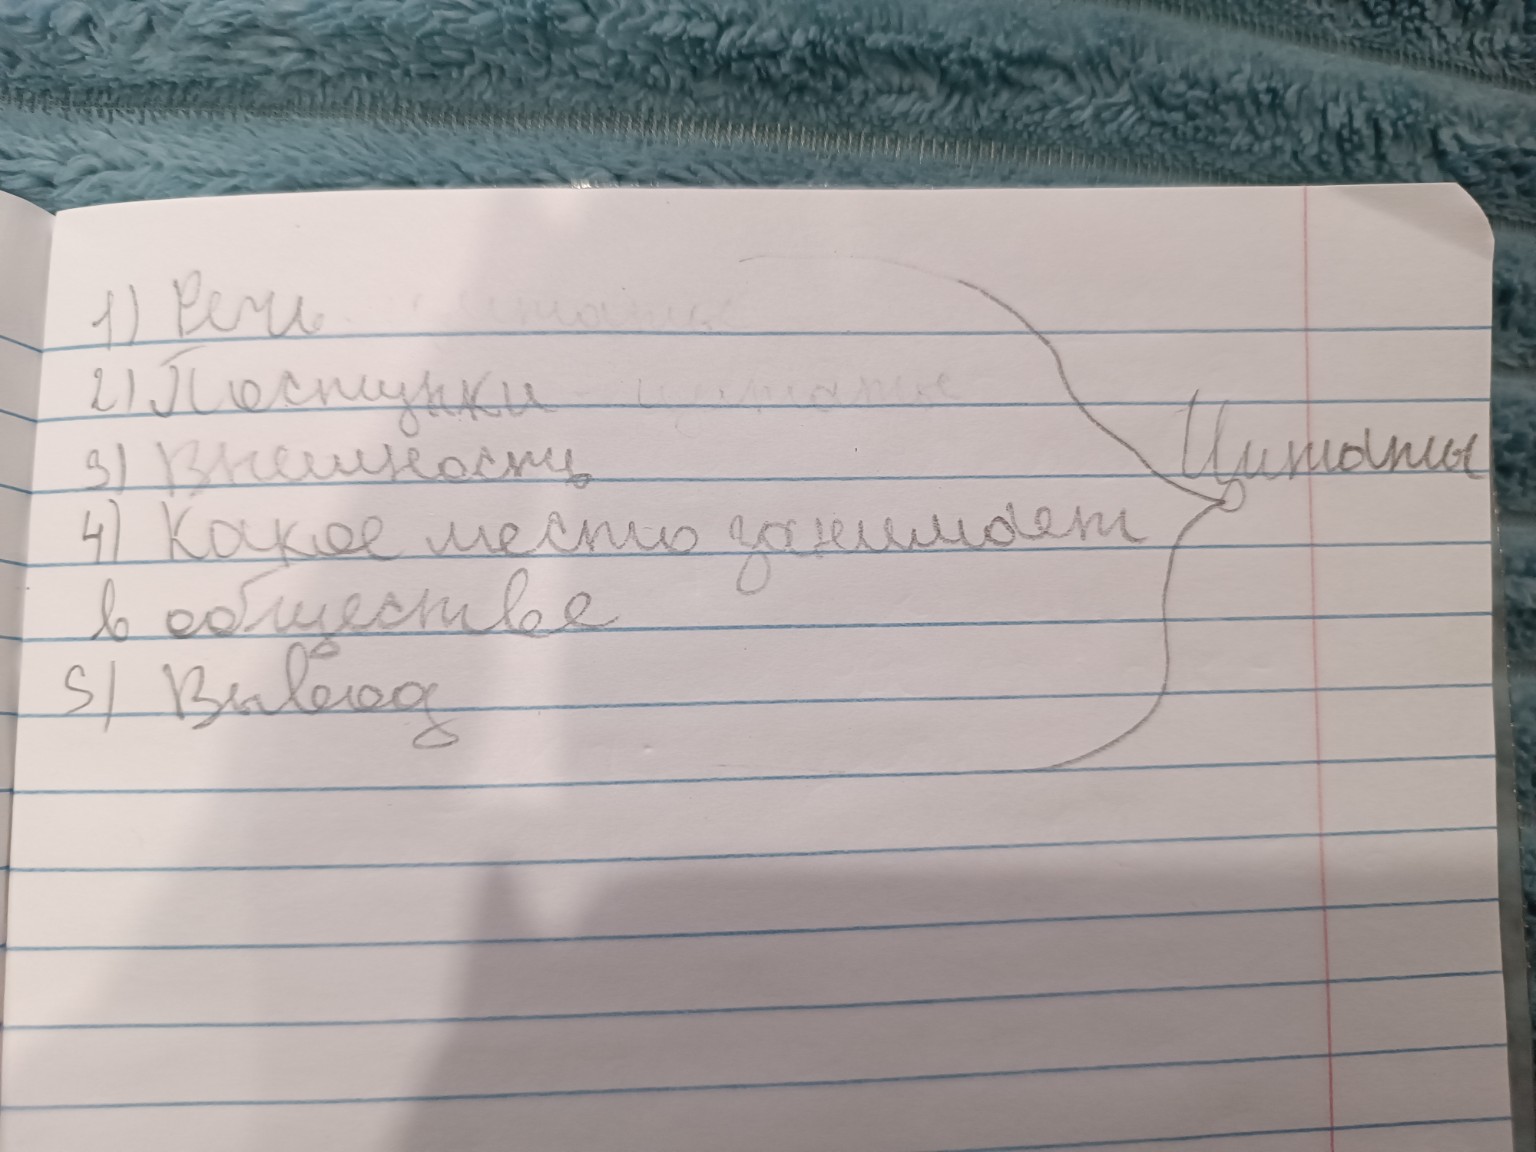 1) Речь
2) Поступки
3) Внешность
4) Какое место занимает
в обществе
5) Вывод
Цитаты